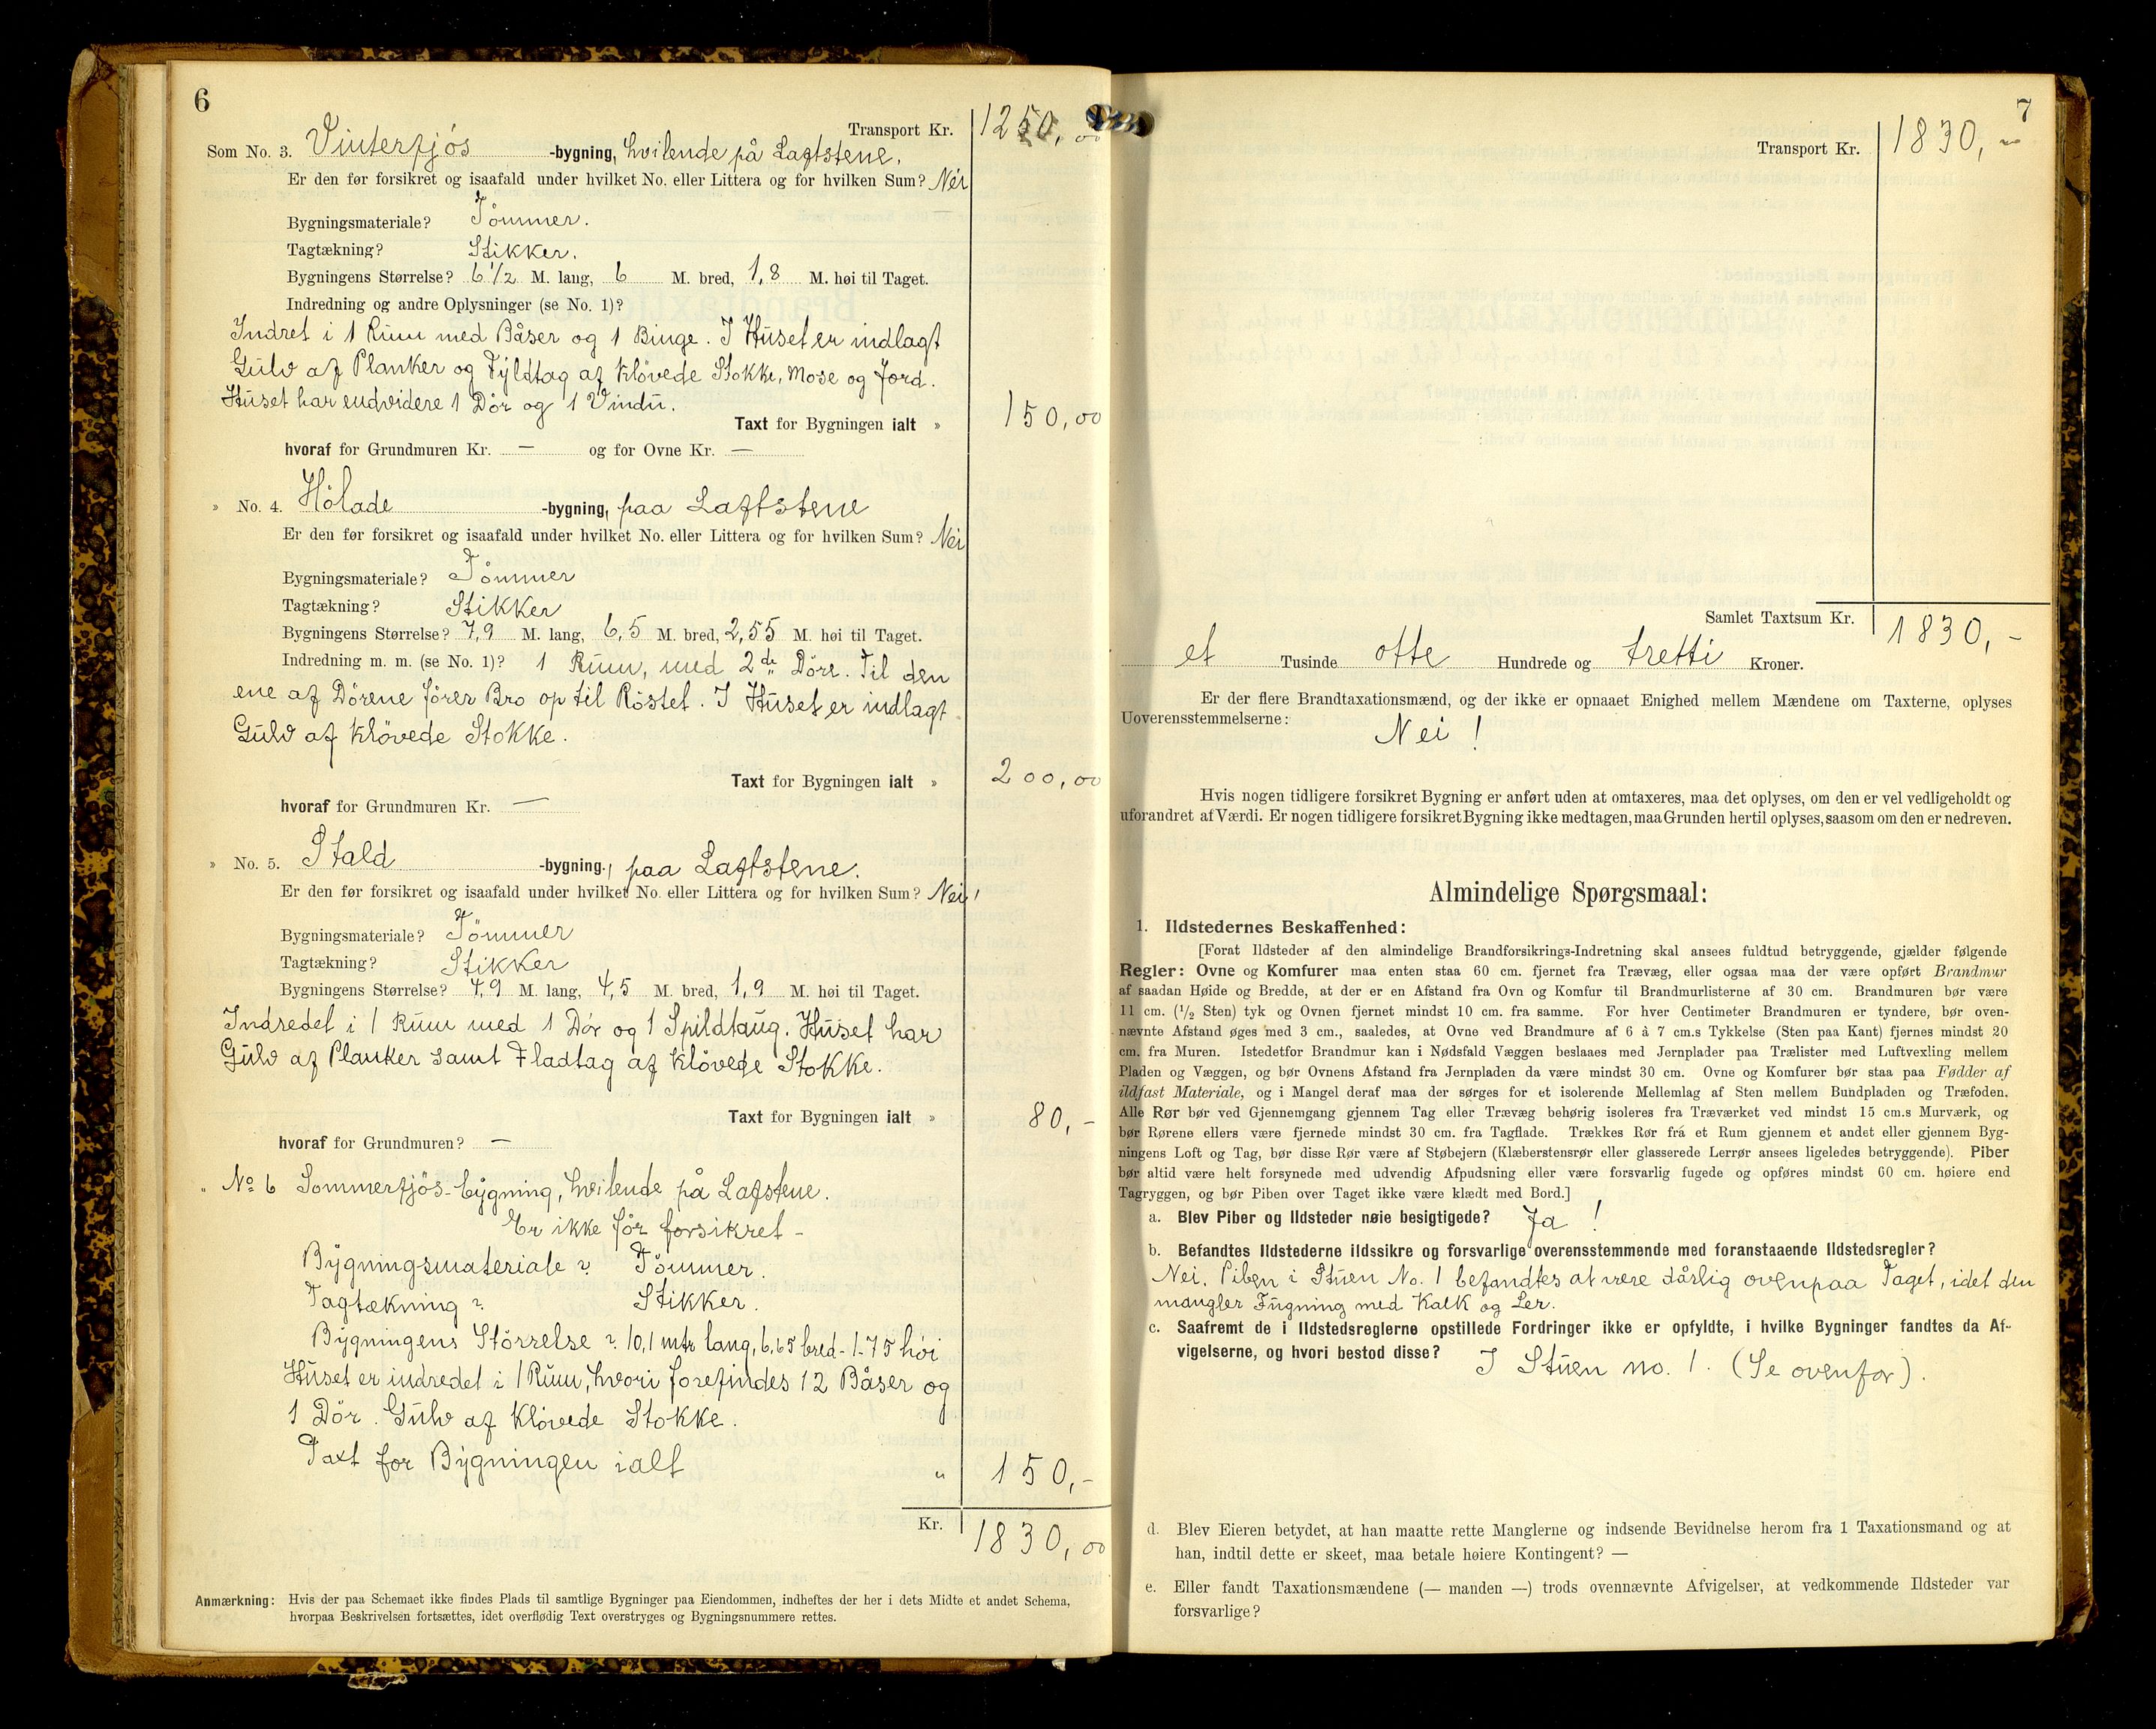 6
Transport Kr. 1250,00
Som No. 3. Vinterfjøs -bygning, hvilende på Laftstene.
Er den før forsikret og isaafald under hvilket No. eller Littera og for hvilken Sum? Nei
Bygningsmateriale? Tømmer.
Tagtækning? Stikker.
Bygningens Størrelse? 6 1/2 M. lang, 6 M. bred, 1,8 M. høi til Taget.
Indredning og andre Oplysninger (se No. 1)?
Indret i 1 Rum med Båser og 1 Binge. I Huset er indlagt
Gulv af Planker og Fyldtag af kløvede Stokke, Mose og Jord.
Huset har endvidere 1 Dør og 1 Vindu.
Taxt for Bygningen ialt » 150,00
hvoraf for Grundmuren Kr. — og for Ovne Kr. —
» No. 4. Hølade -bygning, paa Laftstene
Er den før forsikret og isaafald under hvilket No. eller Littera og for hvilken Sum? Nei
Bygningsmateriale? Tømmer
Tagtækning? Stikker
Bygningens Størrelse? 7,9 M. lang, 6,5 M. bred, 2,55 M. høi til Taget.
Indredning m. m. (se No. 1)? 1 Rum, med 2de Döre. Til den
ene af Dørene fører Bro op til Røstet. I Huset er indlagt
Gulv af kløvede Stokke.
Taxt for Bygningen ialt » 200,00
hvoraf for Grundmuren Kr. —
» No. 5. Stald -bygning., paa Laftstene.
Er den før forsikret og isaafald under hvilket No. eller Littera og for hvilken Sum? Nei!
Bygningsmateriale? Tømmer
Tagtækning? Stikker
Bygningens Størrelse? 4,9 M. lang, 4,5 M. bred, 1,9 M. høi til Taget.
Indredet i 1 Rum med 1 Dör og 1 Spildtaug. Huset har
Gulv af Planker samt Fladtag af kløvede Stokke.
Taxt for Bygningen ialt » 80,-
hvoraf for Grundmuren? —
" No 6 Sommerfjös-bygning, hvilende på Lafstene.
Er ikke før forsikret -
Bygningsmateriale? Tømmer.
Tagtækning? Stikker.
Bygningens Størrelse? 10,1 mtr lang, 6,65 bred - 1-75 høi
Huset er indredet i 1 Rum, hvori forefindes 12 Båser og
1 Dör. Gulv af kløvede Stokke.
Taxt for Bygningen ialt " 150,-
Kr. 1830,00
Anmærkning: Hvis der paa Schemaet ikke findes Plads til samtlige Bygninger paa Eiendommen, indheftes der her i dets Midte et andet Schema,
hvorpaa Beskrivelsen fortsættes, idet overflødig Text overstryges og Bygningsnummere rettes.
7
Transport Kr. 1830,-
Samlet Taxtsum Kr. 1830,-
et Tusinde otte Hundrede og tretti Kroner.
Er der flere Brandtaxationsmænd, og der ikke er opnaaet Enighed mellem Mændene om Taxterne, oplyses
Uoverensstemmelserne:
Nei!
Hvis nogen tidligere forsikret Bygning er anført uden at omtaxeres, maa det oplyses, om den er vel vedligeholdt og
uforandret af Værdi. Er nogen tidligere forsikret Bygning ikke medtagen, maa Grunden hertil oplyses, saasom om den er nedreven.
Almindelige Spørgsmaal:
1. Ildstedernes Beskaffenhed:
[Forat Ildsteder af den almindelige Brandforsikrings-Indretning skal ansees fuldtud betryggende, gjælder følgende
Regler: Ovne og Komfurer maa enten staa 60 cm. fjernet fra Trævæg, eller ogsaa maa der være opført Brandmur
af saadan Høide og Bredde, at der er en Afstand fra Ovn og Komfur til Brandmurlisterne af 30 cm. Brandmuren bør være
11 cm. (1/2 Sten) tyk og Ovnen fjernet mindst 10 cm. fra samme. For hver Centimeter Brandmuren er tyndere, bør oven-
nævnte Afstand øges med 3 cm., saaledes, at Ovne ved Brandmure af 6 à 7 cm.s Tykkelse (Sten paa Kant) fjernes mindst 20
cm. fra Muren. Istedetfor Brandmur kan i Nødsfald Væggen beslaaes med Jernplader paa Trælister med Luftvexling mellem
Pladen og Væggen, og bør Ovnens Afstand fra Jernpladen da være mindst 30 cm. Ovne og Komfurer bør staa paa Fødder af
ildfast Materiale, og i Mangel deraf maa der sørges for et isolerende Mellemlag af Sten mellem Bundpladen og Træfoden.
Alle Rør bør ved Gjennemgang gjennem Tag eller Trævæg behørig isoleres fra Træværket ved mindst 15 cm.s Murværk, og
bør Rørene ellers være fjernede mindst 30 cm. fra Tagflade. Trækkes Rør frá et Rum gjennem et andet eller gjennem Byg-
ningens Loft og Tag, bør disse Rør være af Støbejern (Klæberstensrør eller glasserede Lerrør ansees ligeledes betryggende). Piber
bør altid være helt forsynede med udvendig Afpudsning eller være forsvarlig fugede og opføres mindst 60 cm. høiere end
Tagryggen, og bør Piben over Taget ikke være klædt med Bord.]
a. Blev Piber og Ildsteder nøie besigtigede? Ja!
b. Befandtes Ildstederne ildssikre og forsvarlige overensstemmende med foranstaaende Ildstedsregler?
Nei. Piben i Stuen No. 1 befandtes at være dårlig ovenpaa Taget, idet den
mangler Fugning med Kalk og Ler.
c. Saafremt de i Ildstedsreglerne opstillede Fordringer ikke er opfyldte, i hvilke Bygninger fandtes da Af-
vigelserne, og hvori bestod disse? I Stuen no. 1. (Se ovenfor).
d. Blev Eieren betydet, at han maatte rette Manglerne og indsende Bevidnelse herom fra 1 Taxationsmand og at
han, indtil dette er skeet, maa betale høiere Kontingent? —
e. Eller fandt Taxationsmændene (— manden —) trods ovennævnte Afvigelser, at vedkommende Ildsteder var
forsvarlige?